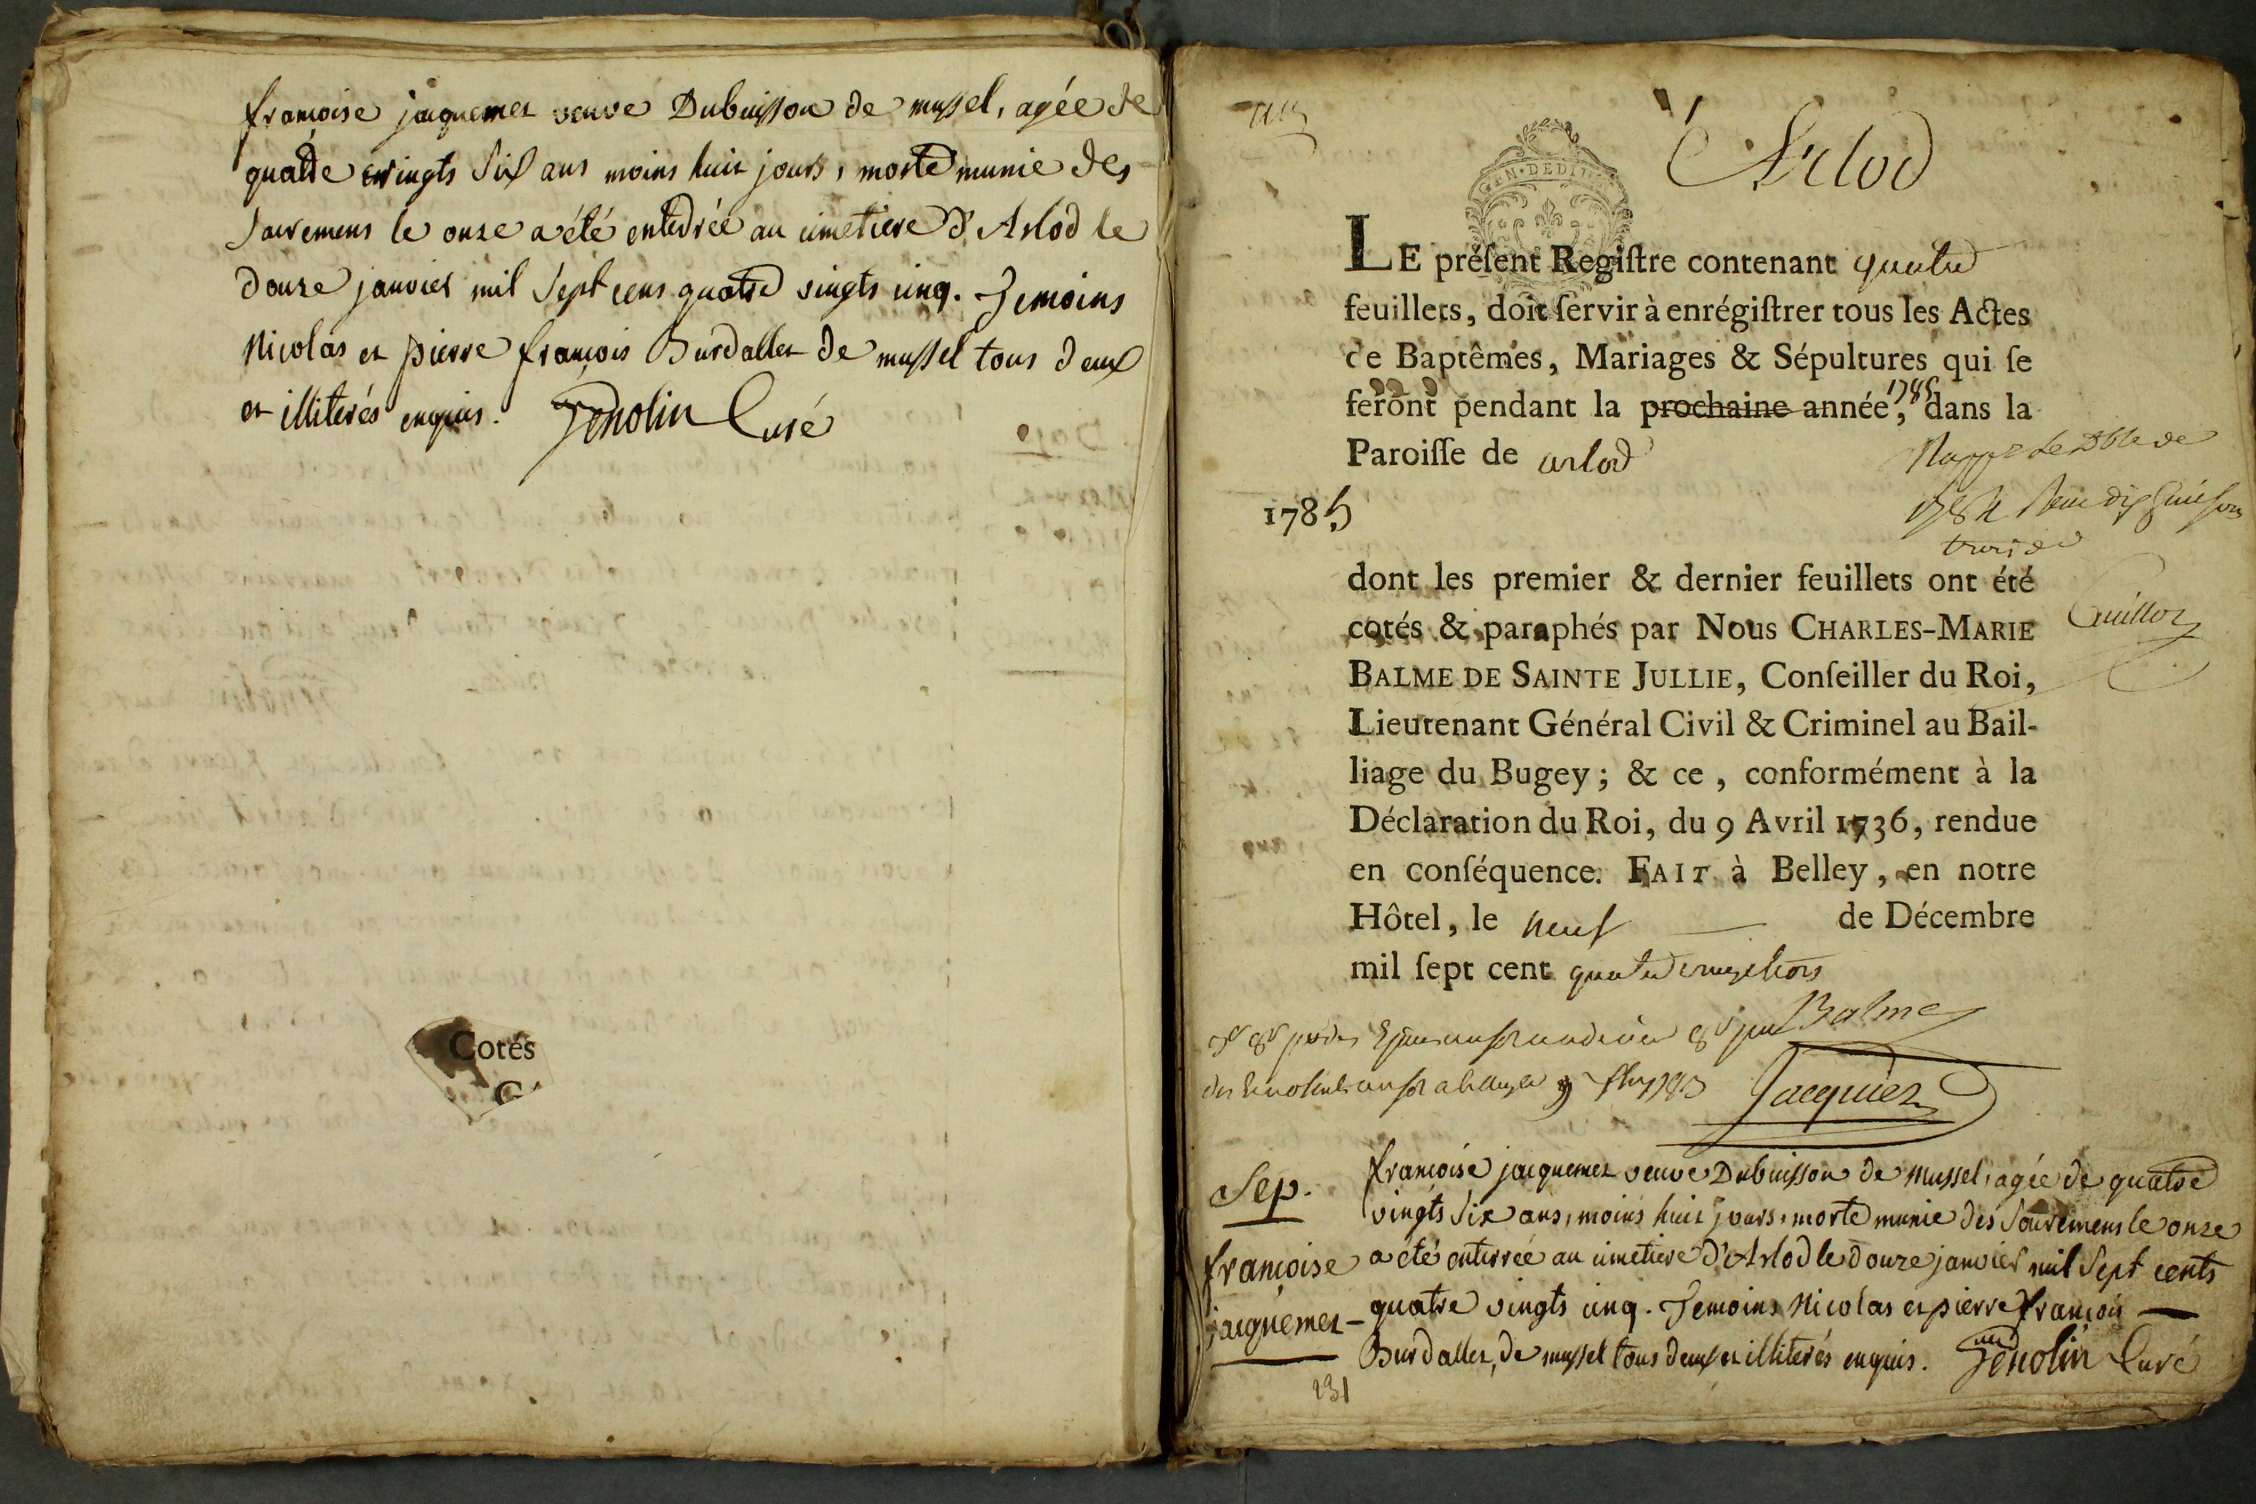 françoise jacquemet veuve Dubuisson de mussel, agée de
quatre vingts six ans moins huit jours, morte munie des
sacremens le onze a été enterrée au cimetiere d'Arlod le
douze janvier mil sept cens quatre vingts cinq. Temoins
Nicolas et pierre françois Burdallet de mussel tous deux
et illiterés enquis. Genolin Curé
Cotés
Arlod
GEN. DEDIT
LE préſent Regiſtre contenant quatre
feuillets, doit ſervir à enrégiſtrer tous les Actes
de Baptêmes, Mariages & Sépultures qui ſe
feront pendant la prochaine année 1785, dans la
Paroiſſe de arlod
1785
dont les premier & dernier feuillets ont été
cotés & paraphés par Nous CHARLES-MARIE
BALME DE SAINTE JULLIE, Conſeiller du Roi,
Lieutenant Général Civil & Criminel au Bail-
liage du Bugey ; & ce, conformément à la
Déclaration du Roi, du 9 Avril 1736, rendue
en conſéquence. FAIT à Belley, en notre
Hôtel, le neuf de Décembre
mil ſept cent quatre vingt trois
Balme
Jacquier
Sep.
françoise
jacquemet
françoise jacquemet veuve Dubuisson de Mussel, agée de quatre
vingts six ans, moins huit jours, morte munie des sacremens le onze
a été enterrée au cimetiere d'Arlod le douze janvier mil sept cents
quatre vingts cinq. Temoins Nicolas et pierre françois
Burdallet, de mussel tous deux et illiterés enquis. Genolin Curé
231